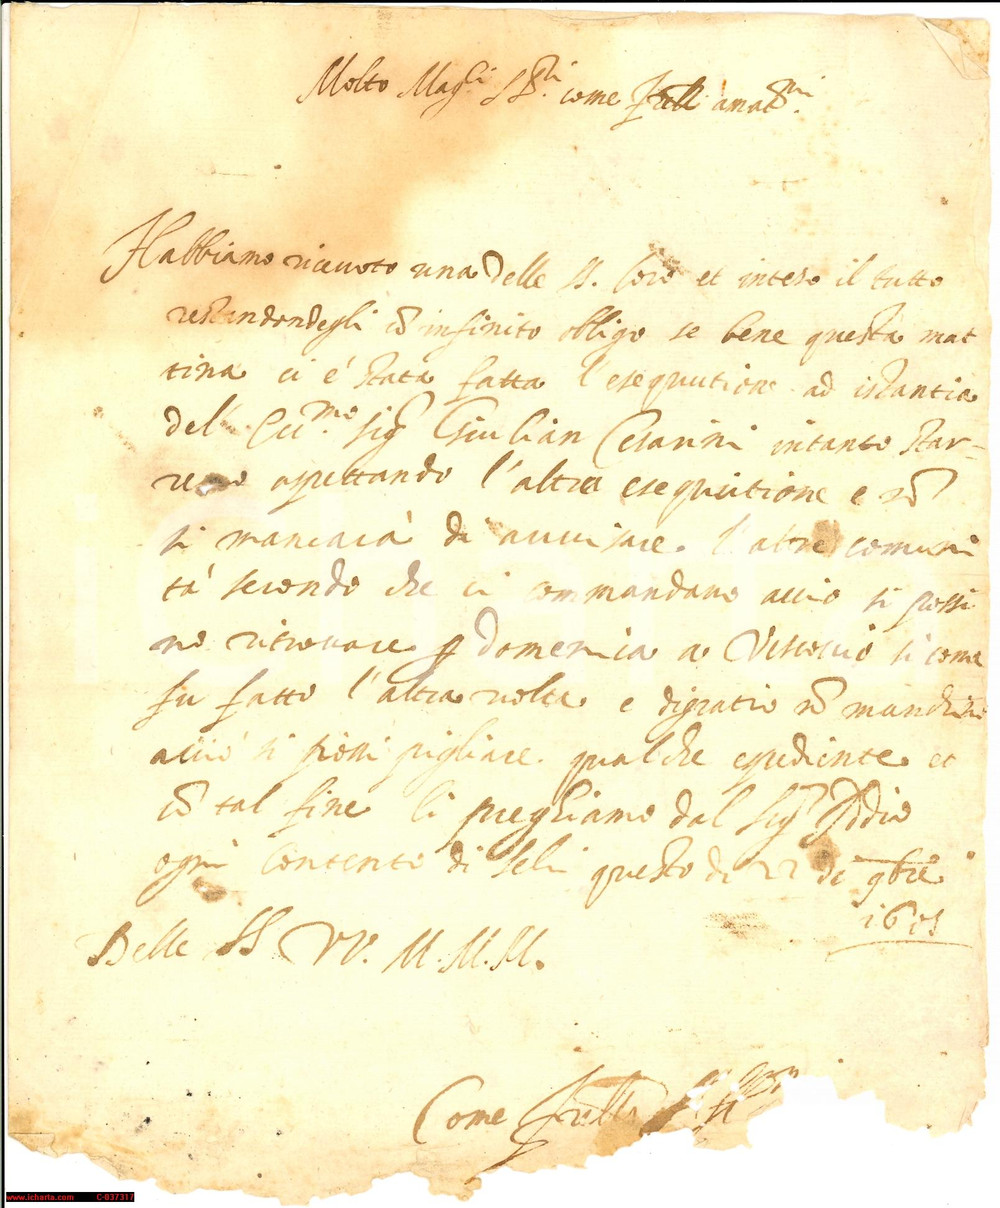 Molto Mag.ci SS.ri come fratelli amat.mi
Habbiamo riceuto una delle SS. loro et inteso il tutto
restandondegli cō infinito obligo se bene questa mat
tina ci é stata fatta l'esequutione ad istantia
dell' Ecc.mo sig.r Giulian Cesarini intanto star-
remo aspettando l'altra esequutione e nō
si mancarà di auuisare l'altre comuni
tà secondo che ci commandano acció si possi
no ritrouare p domenica a Vicouio si come
fu fatto l'altra uolta e digratia nō manchino
acció si possi pigliare qualche espediente et
cō tal fine li preghiamo dal sig.r Iddio
ogni contento di Seli questo di 22 di 9bre
1601
Delle SS VV. M. M. M.
Come fratelli
www.icharta.com C-837317